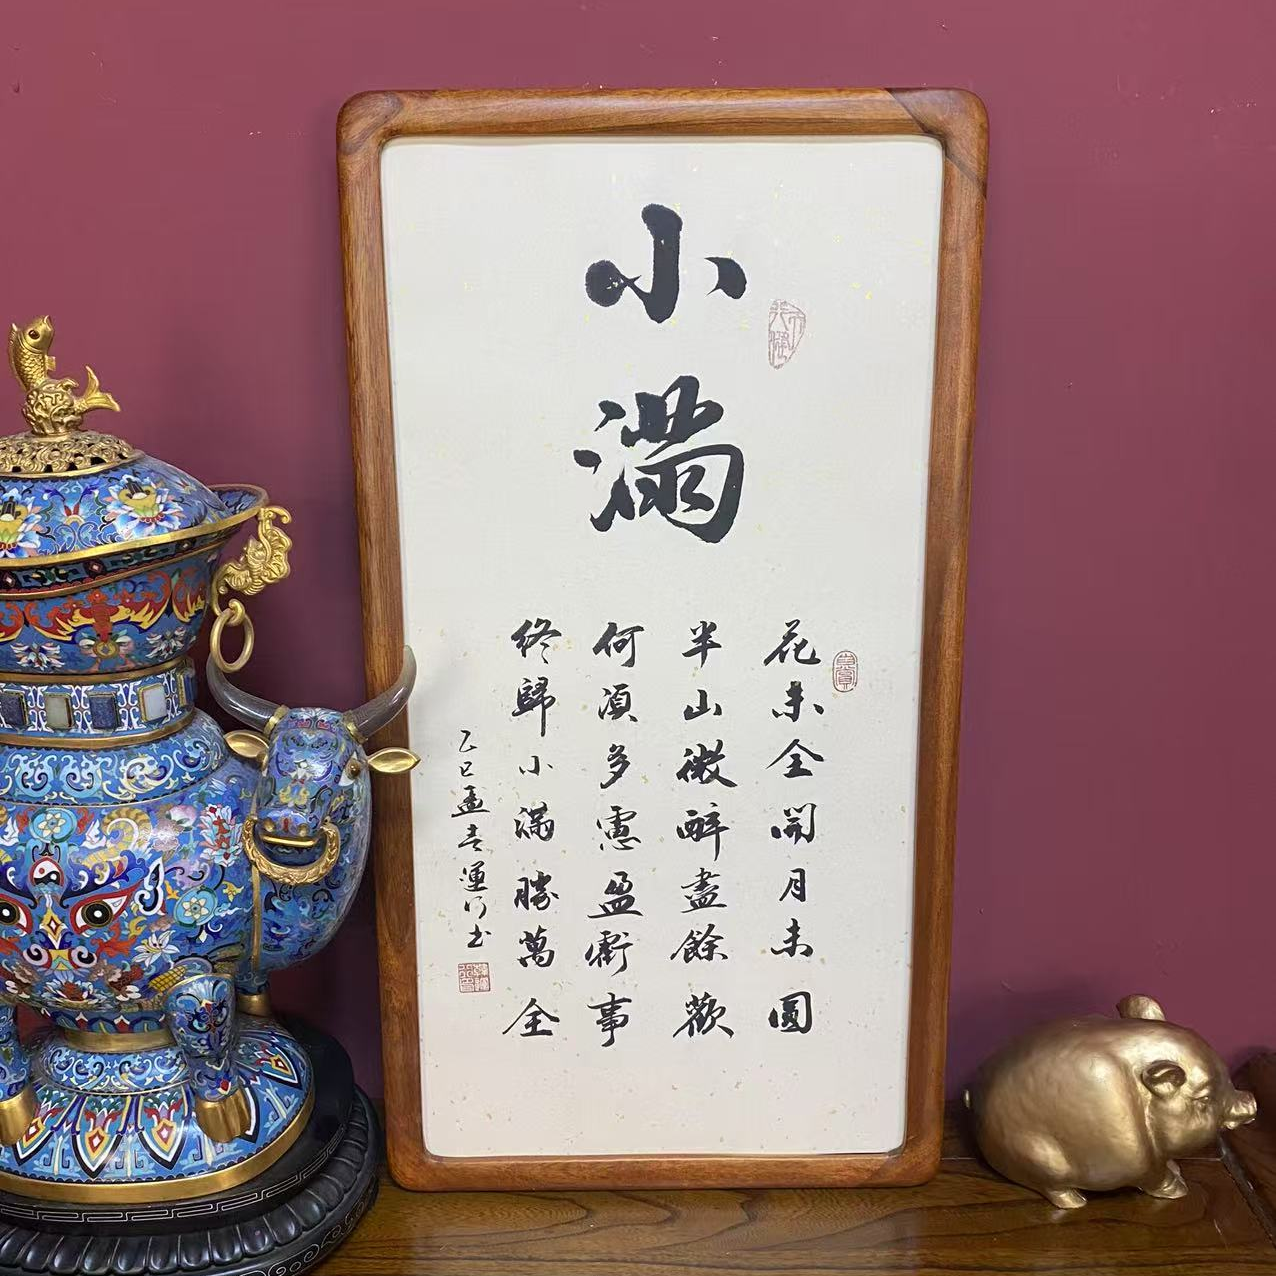 小滿
花未全開月未圓
半山微醉盡餘歡
何須多慮盈虧事
終歸小滿勝萬全
乙巳孟春運行書